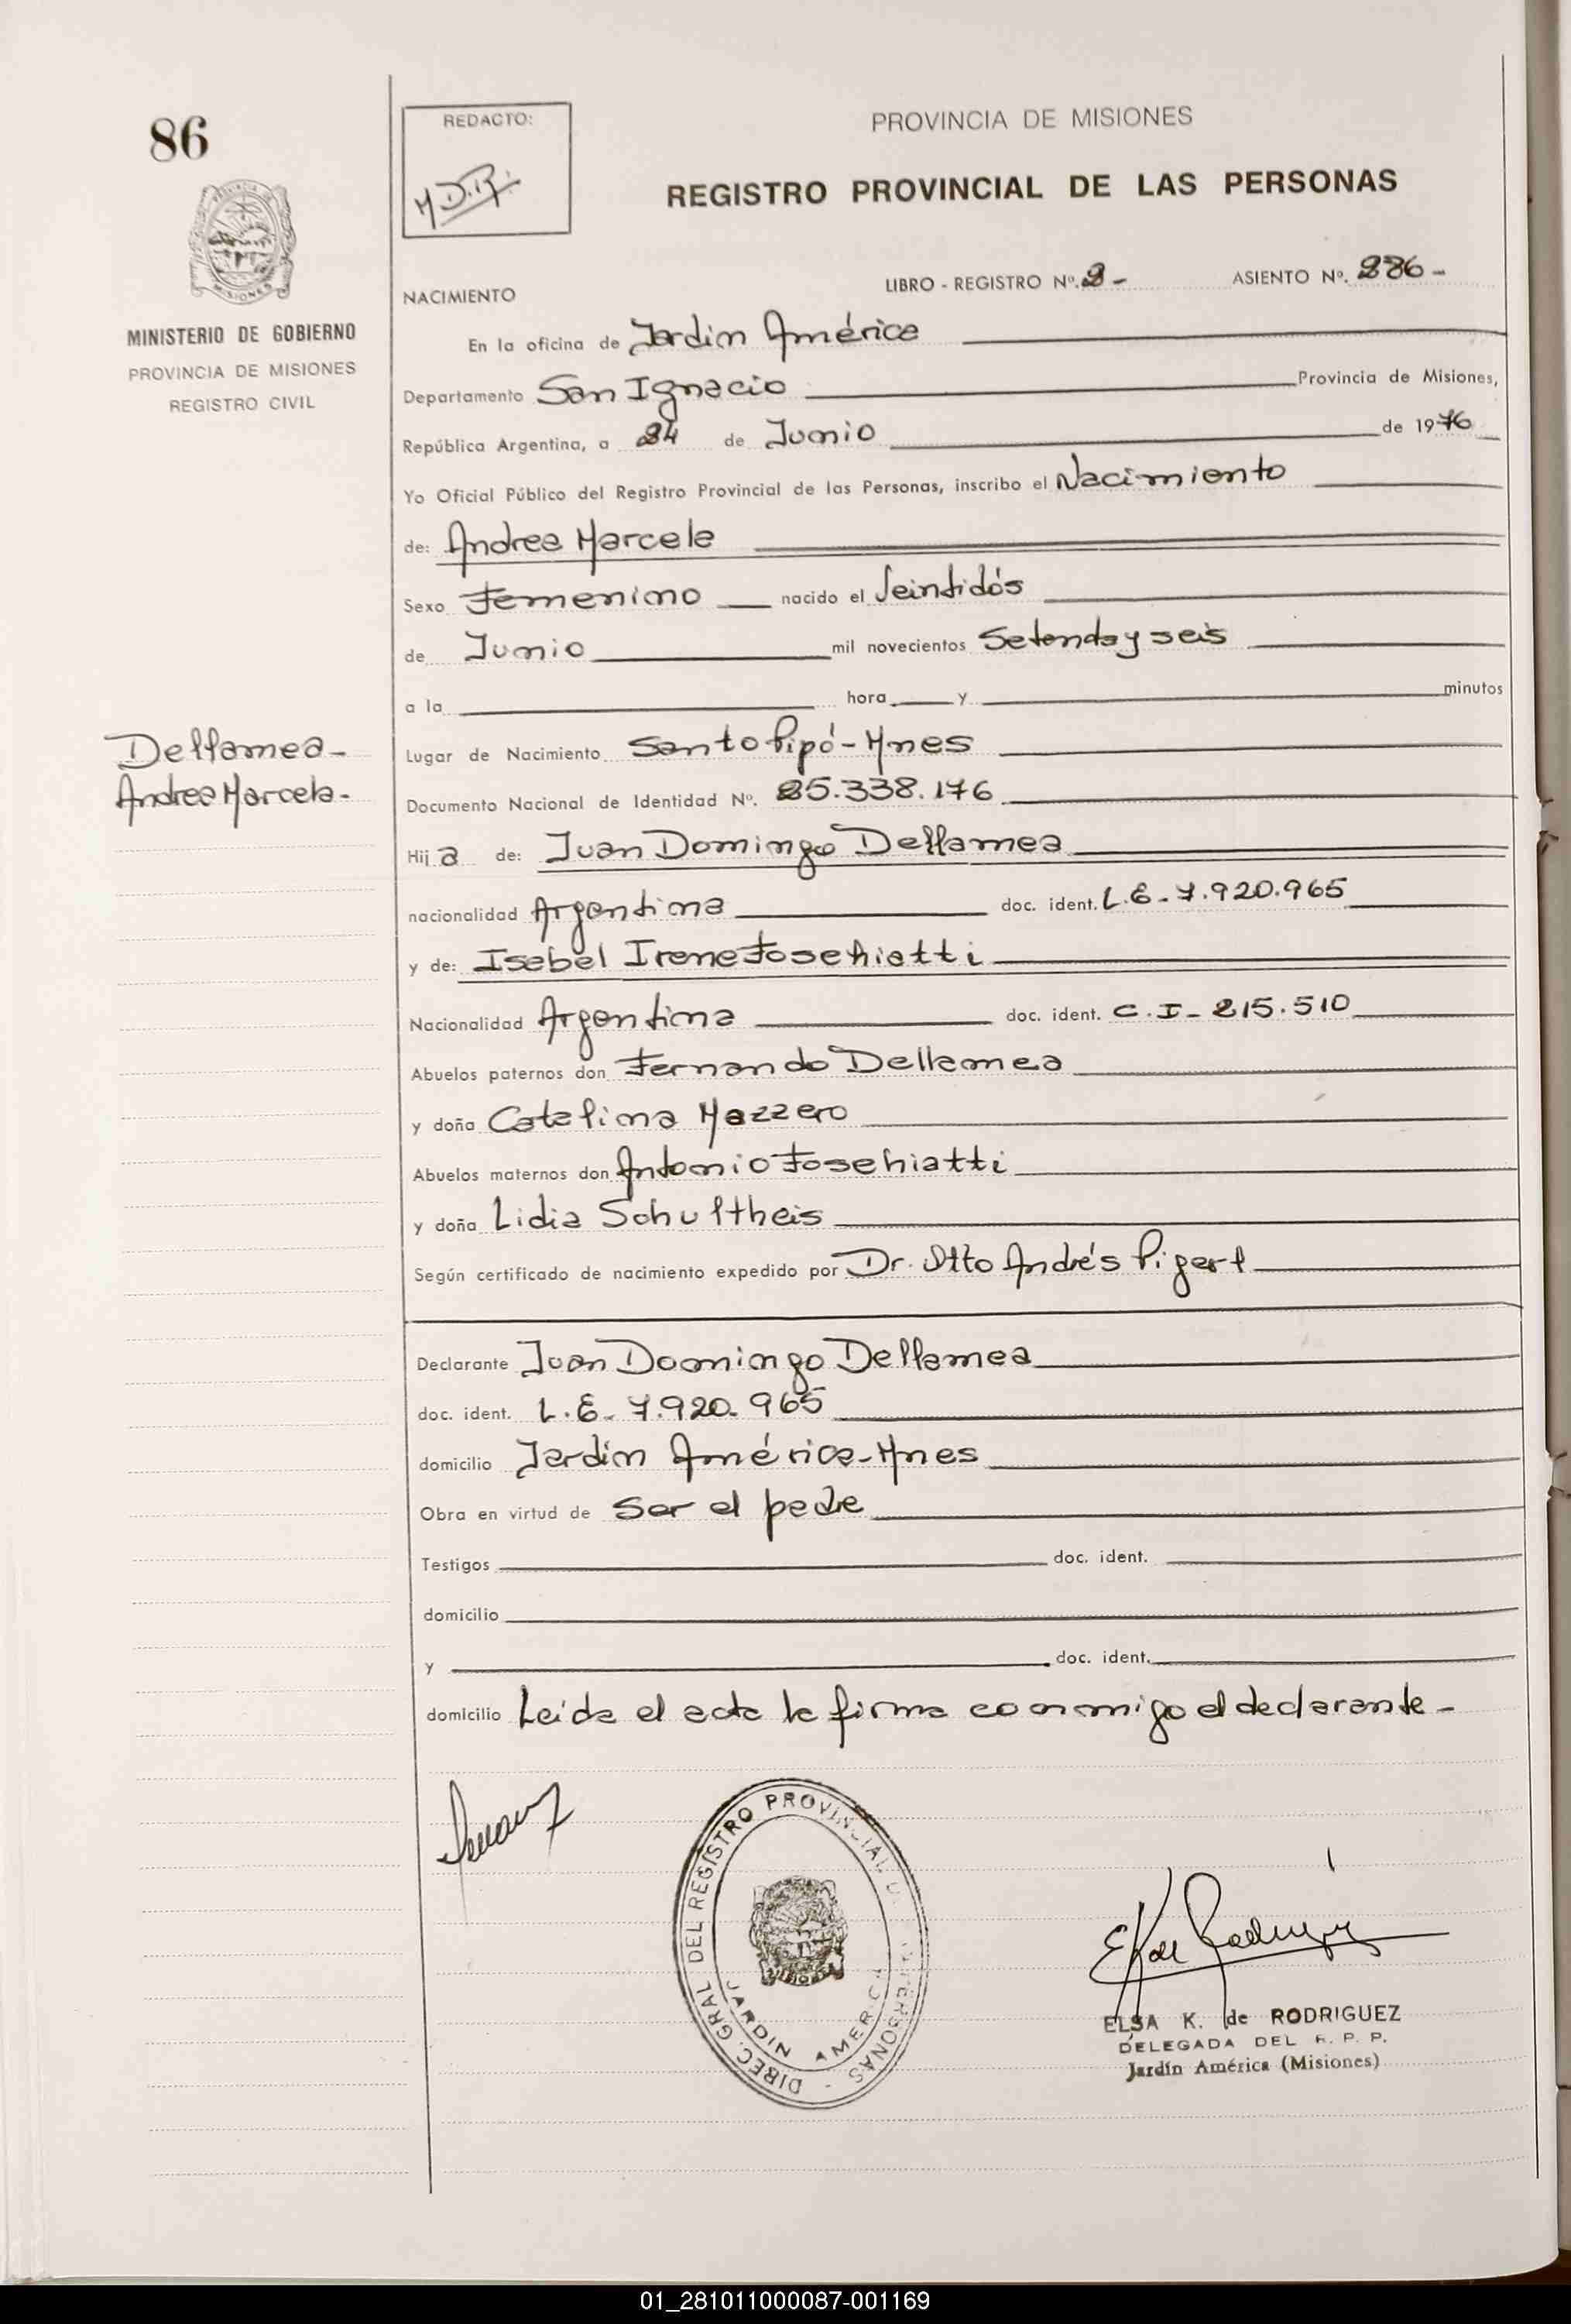 86
REDACTO:
PROVINCIA DE MISIONES
REGISTRO PROVINCIAL DE LAS PERSONAS
MISIONES
MINISTERIO DE GOBIERNO
PROVINCIA DE MISIONES
REGISTRO CIVIL
NACIMIENTO LIBRO - REGISTRO Nº. 2 - ASIENTO Nº. 286 -
En la oficina de Jardin América
Departamento San Ignacio Provincia de Misiones,
República Argentina, a 24 de Junio de 1976
Yo Oficial Público del Registro Provincial de las Personas, inscribo el Nacimiento
de: Andrea Marcela
Sexo Femenino nacido el Veintidós
de Junio mil novecientos Setenta y seis
a la hora y minutos
Dellamea-
Andrea Marcela-
Lugar de Nacimiento Santo Pipó - Mnes
Documento Nacional de Identidad Nº. 25.338.176
Hija de: Juan Domingo Dellamea
nacionalidad Argentina doc. ident. L.E - 7.920.965
y de: Isabel Irene Foschiatti
Nacionalidad Argentina doc. ident. C.I - 215.510
Abuelos paternos don Fernando Dellamea
y doña Catalina Mazzero
Abuelos maternos don Antonio Foschiatti
y doña Lidia Schultheis
Según certificado de nacimiento expedido por Dr. Otto Andrés Pigerl
Declarante Juan Domingo Dellamea
doc. ident. L.E - 7.920.965
domicilio Jardin América - Mnes
Obra en virtud de Ser el padre
Testigos doc. ident.
domicilio
y doc. ident.
domicilio Leida el acta la firma conmigo el declarante -
DIREC. GRAL DEL REGISTRO PROVINCIAL D PERSONAS -
JARDIN AMERICA
ELSA K. de RODRIGUEZ
DELEGADA DEL R. P. P.
Jardín América (Misiones)
01_281011000087-001169